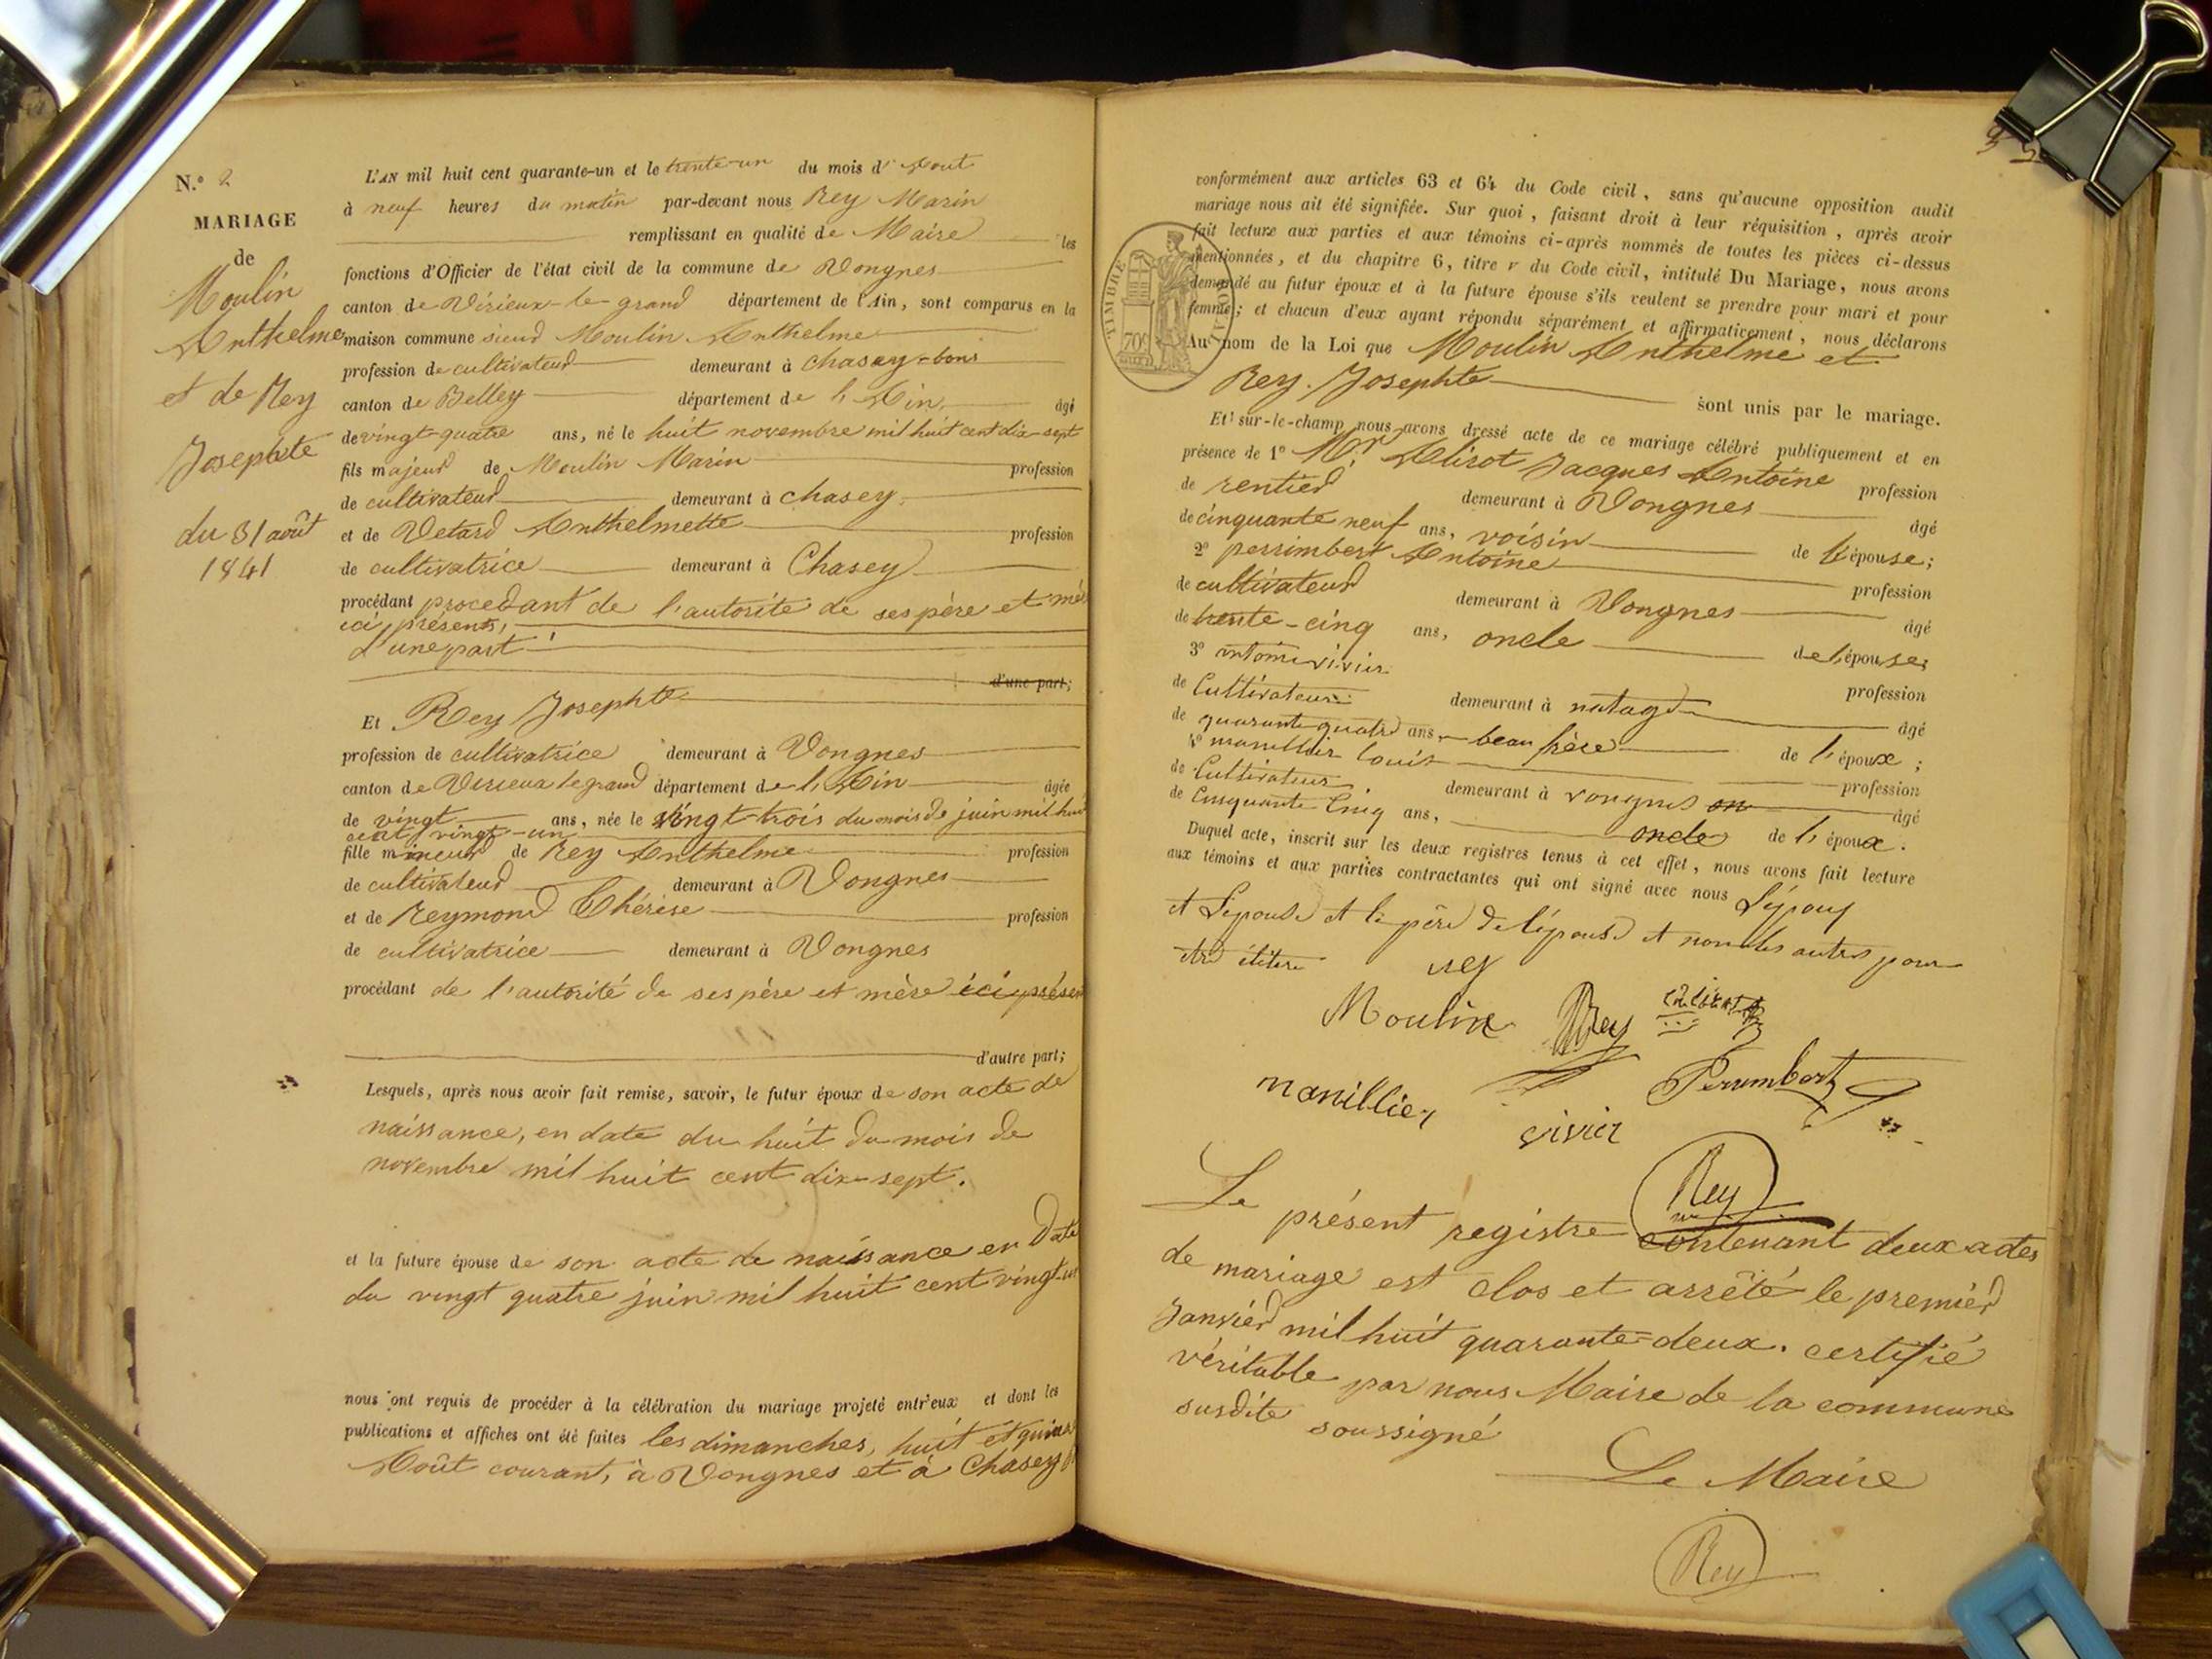 N.° 2
MARIAGE
de
Moulin
Anthelme
et de Rey
Josephte
du 31 août
1841
L'AN mil huit cent quarante-un et le trente-un du mois d'Aout
à neuf heures du matin par-devant nous Rey Marin
remplissant en qualité de Maire les
fonctions d'Officier de l'état civil de la commune de Vongnes
canton de Virieux-le-grand département de l'Ain, sont comparus en la
maison commune sieur Moulin Anthelme
profession de cultivateur demeurant à chasey-bons
canton de Belley département de l'Ain, âgé
de vingt-quatre ans, né le huit novembre mil huit cent dix-sept
fils majeur de Moulin Marin profession
de cultivateur demeurant à chasey,
et de Vetard Anthelmette profession
de cultivatrice demeurant à Chasey
procédant procedant de l'autorité de ses père et mèr
ici présents,
d'une part
d'une part;
Et Rey Josephte
profession de cultivatrice demeurant à Vongnes
canton de Virieux le grand département de l'Ain âgée
de vingt ans, née le vingt-trois du mois de juin mil huit
cent vingt-un
fille mineur de Rey Anthelme profession
de cultivateur demeurant à Vongnes
et de Reymond Thérèse profession
de cultivatrice demeurant à Vongnes
procédant de l'autorité de ses père et mère ici présen
d'autre part;
Lesquels, après nous avoir fait remise, savoir, le futur époux de son acte de
naissance, en date du huit du mois de
novembre mil huit cent dix-sept.
et la future épouse de son acte de naissance en date
du vingt quatre juin mil huit cent vingt-un
nous ont requis de procéder à la célébration du mariage projeté entr'eux et dont les
publications et affiches ont été faites les dimanches, huit et quinze
Août courant, à Vongnes et à Chasey
conformément aux articles 63 et 64 du Code civil, sans qu'aucune opposition audit
mariage nous ait été signifiée. Sur quoi, faisant droit à leur réquisition, après avoir
fait lecture aux parties et aux témoins ci-après nommés de toutes les pièces ci-dessus
mentionnées, et du chapitre 6, titre v du Code civil, intitulé Du Mariage, nous avons
demandé au futur époux et à la future épouse s'ils veulent se prendre pour mari et pour
femme; et chacun d'eux ayant répondu séparément et affirmativement, nous déclarons
Au nom de la Loi que Moulin Anthelme et
Rey Josephte sont unis par le mariage.
TIMBRE ROYAL
Et sur-le-champ nous avons dressé acte de ce mariage célébré publiquement et en
présence de 1° Mr Jacques Antoine profession
de rentier demeurant à Vongnes âgé
de cinquante neuf ans, voisin de l'épouse;
2° perrimbert Antoine profession
de cultivateur demeurant à Vongnes âgé
de trente-cinq ans, oncle de l'épouse;
3° antoine vivier profession
de Cultivateur demeurant à natage âgé
de quarante quatre ans, beau frère de l'époux;
4° manillier louis profession
de Cultivateur demeurant à vongnes on âgé
de Cinquante Cinq ans, oncle de l'époux.
Duquel acte, inscrit sur les deux registres tenus à cet effet, nous avons fait lecture
aux témoins et aux parties contractantes qui ont signé avec nous L'époux
et L'épouse et le père de l'épouse et non les autres pour
rey
Moulin Rey
manillier vivier Perrimbert
Rey
Le présent registre contenant deux actes
de mariage est clos et arrêté le premier
Janvier mil huit quarante-deux. certifié
véritable par nous Maire de la commune
susdite soussigné
Le Maire
Rey